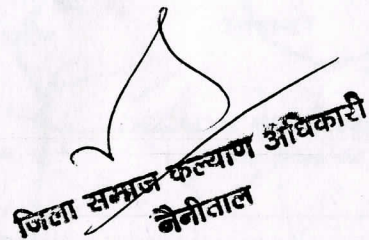 जिला समाज कल्याण अधिकारी
नैनीताल